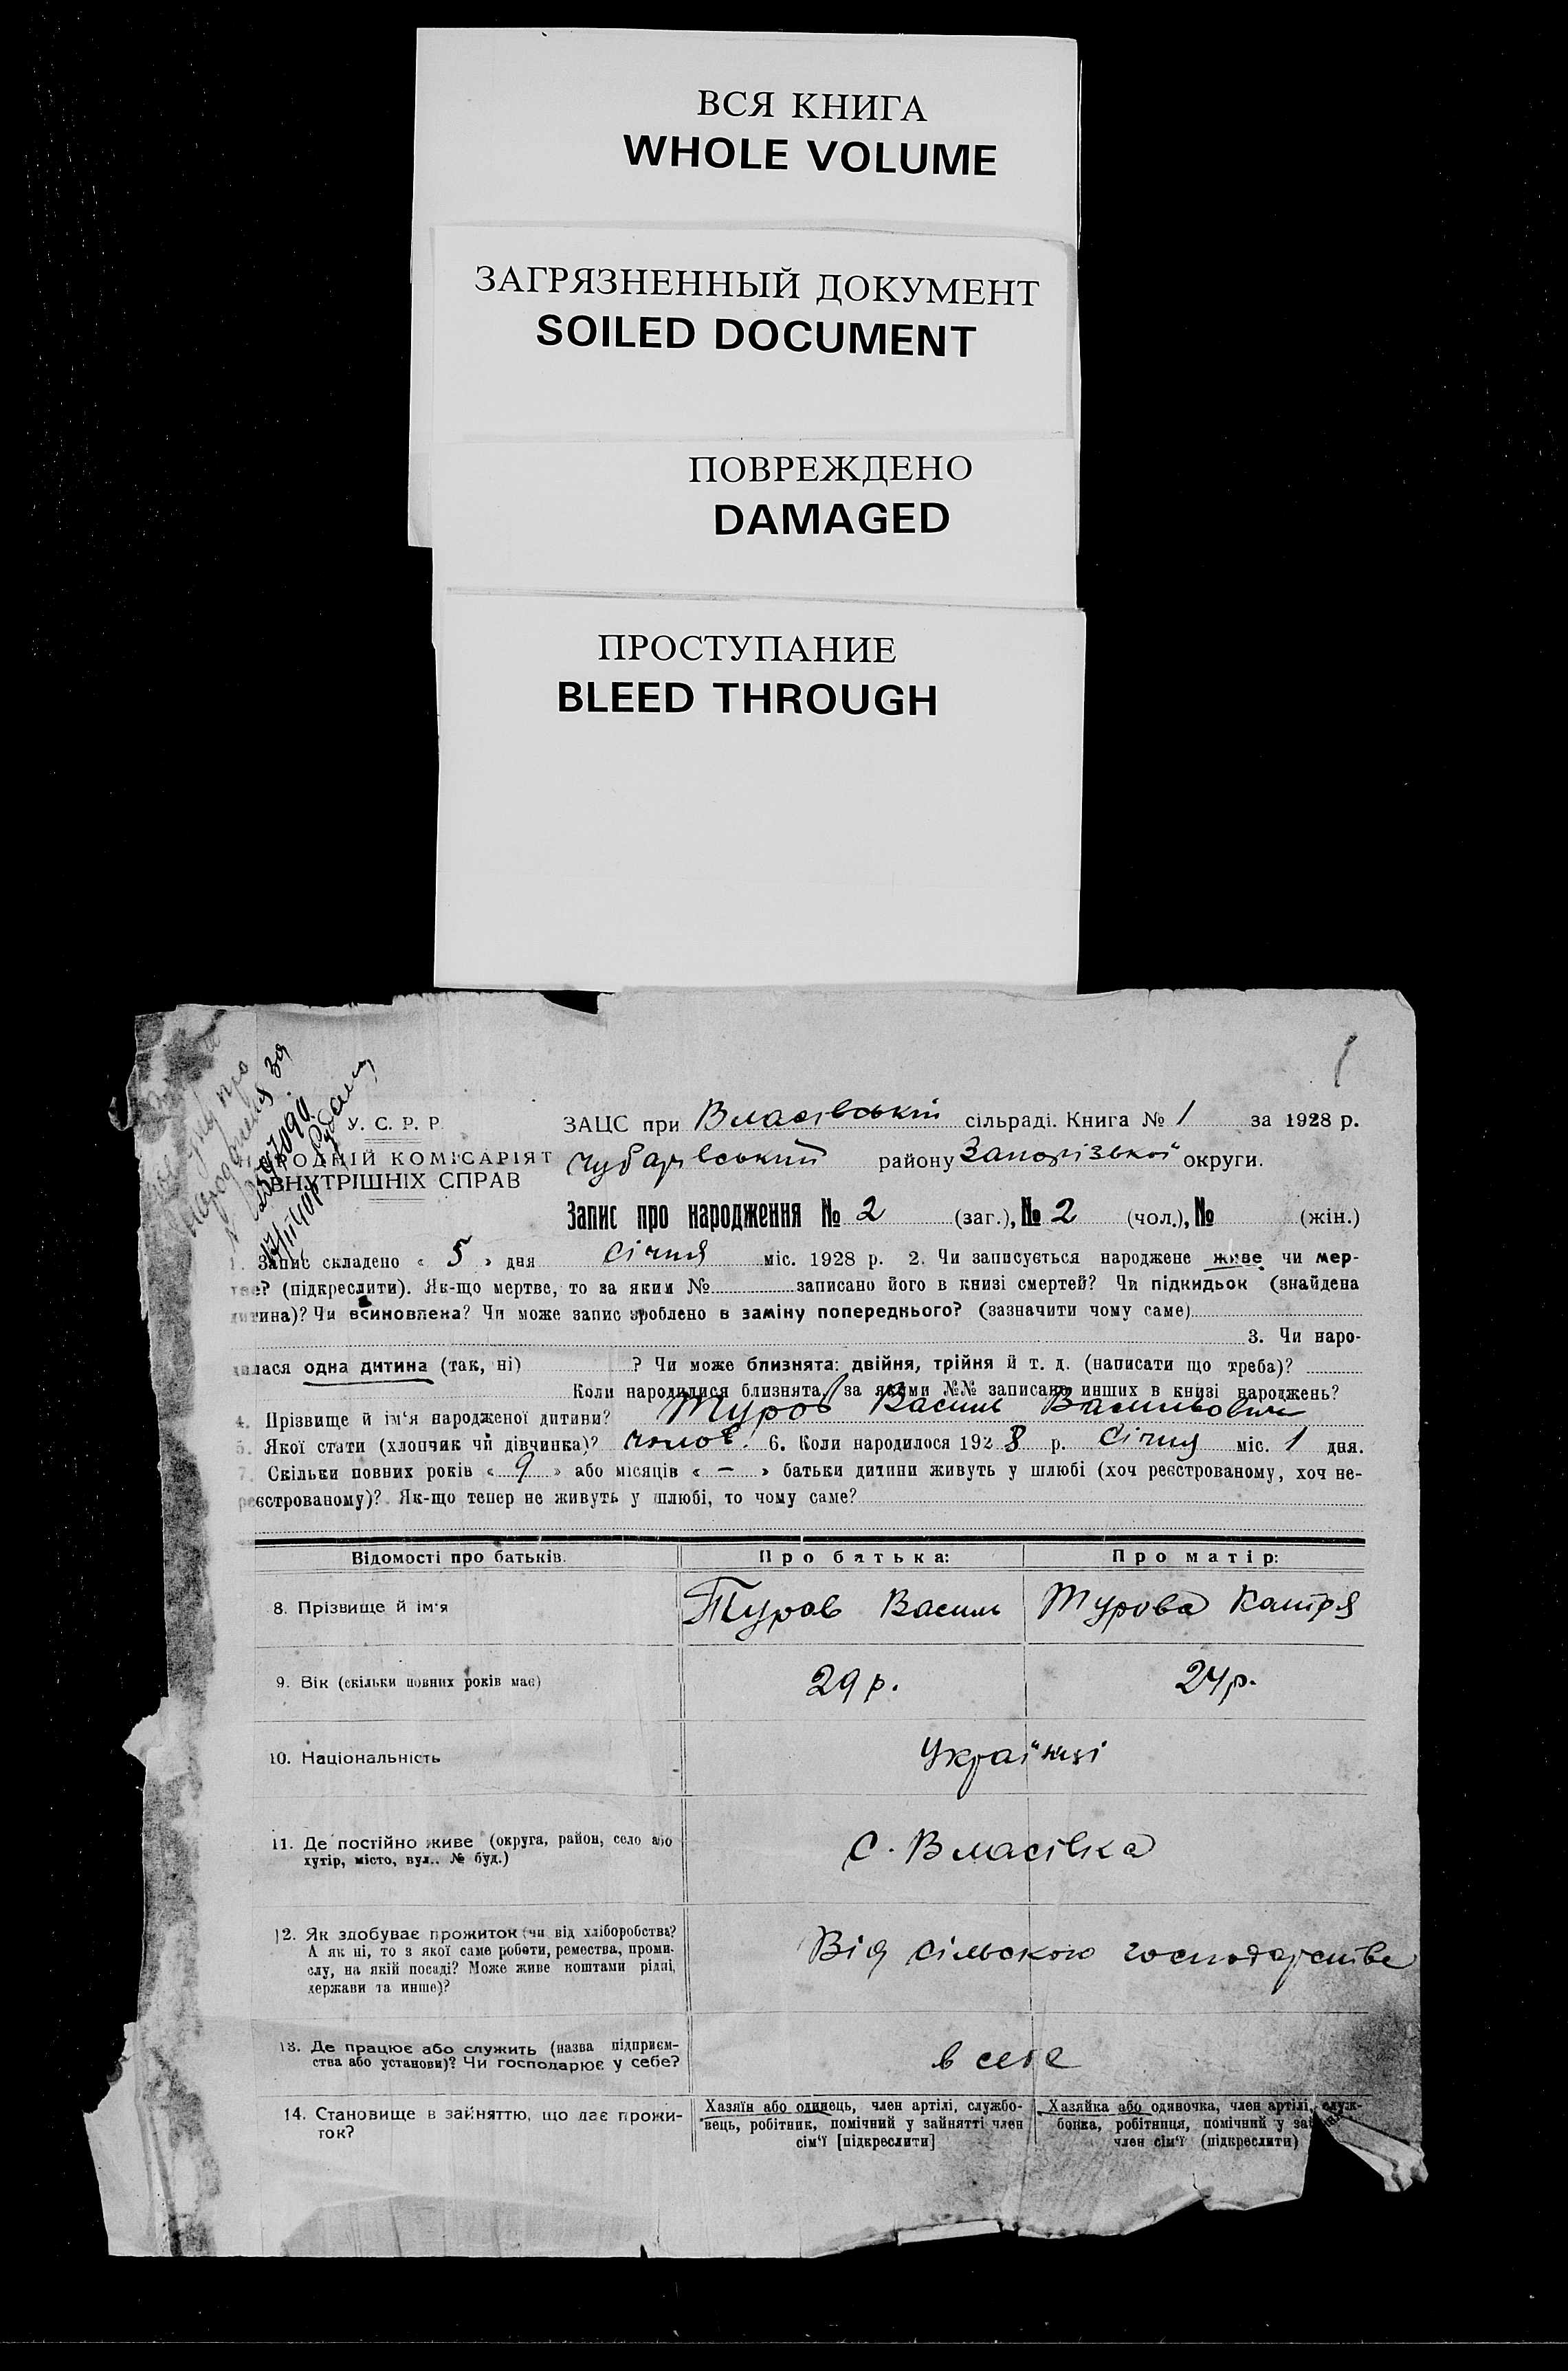 ВСЯ КНИГА
WHOLE VOLUME
ЗАГРЯЗНЕННЫЙ ДОКУМЕНТ
SOILED DOCUMENT
ПОВРЕЖДЕНО
DAMAGED
ПРОСТУПАНИЕ
BLEED THROUGH
У. С. Р. Р.
РОДНІЙ КОМІСАРІЯТ
ВНУТРІШНІХ СПРАВ
ЗАЦС при Власівській сільраді. Книга № 1 за 1928 р.
Чубарівський району Запорізької округи.
Запис про народження № 2 (заг.), № 2 (чол.), № (жін.)
1. Запис складено « 5 » дня Січня міс. 1928 р. 2. Чи записується народжене живе чи мер-
тве? (підкреслити). Як-що мертве, то за яким № записано його в книзі смертей? Чи підкидьок (знайдена
дитина)? Чи всиновлена? Чи може запис зроблено в заміну попереднього? (зазначити чому саме)
3. Чи наро-
дилася одна дитина (так, ні) ? Чи може близнята: двійня, трійня й т. д. (написати що треба)?
Коли народилися близнята, за якими №№ записано инших в книзі народжень?
4. Прізвище й ім'я народженої дитини? Туров Василь Васильович
5. Якої стати (хлопчик чи дівчинка)? чолов. 6. Коли народилося 1928 р. Січня міс. 1 дня.
7. Скільки повних років « 9 » або місяців « — » батьки дитини живуть у шлюбі (хоч реєстрованому, хоч не-
реєстрованому)? Як-що тепер не живуть у шлюбі, то чому саме?
Відомості про батьків. Про батька: Про матір:
8. Прізвище й ім'я Туров Василь Турова Катря
9. Вік (скільки повних років має) 29 р. 24 р.
10. Національність Українці
11. Де постійно живе (округа, район, село або
хутір, місто, вул.. № буд.) С. Власівка
12. Як здобуває прожиток (чи від хліборобства?
А як ні, то з якої саме роботи, ремества, проми-
слу, на якій посаді? Може живе коштами рідні,
держави та инше)? Від сільського господарства
13. Де працює або служить (назва підприєм-
ства або установи)? Чи господарює у себе? в себе
14. Становище в зайняттю, що дає прожи-
ток?
Хазяїн або одинець, член артілі, службо-
вець, робітник, помічний у зайнятті член
сім'ї [підкреслити]
Хазяйка або одиночка, член артілі, служ-
бовка, робітниця, помічний у
член сім'ї (підкреслити)